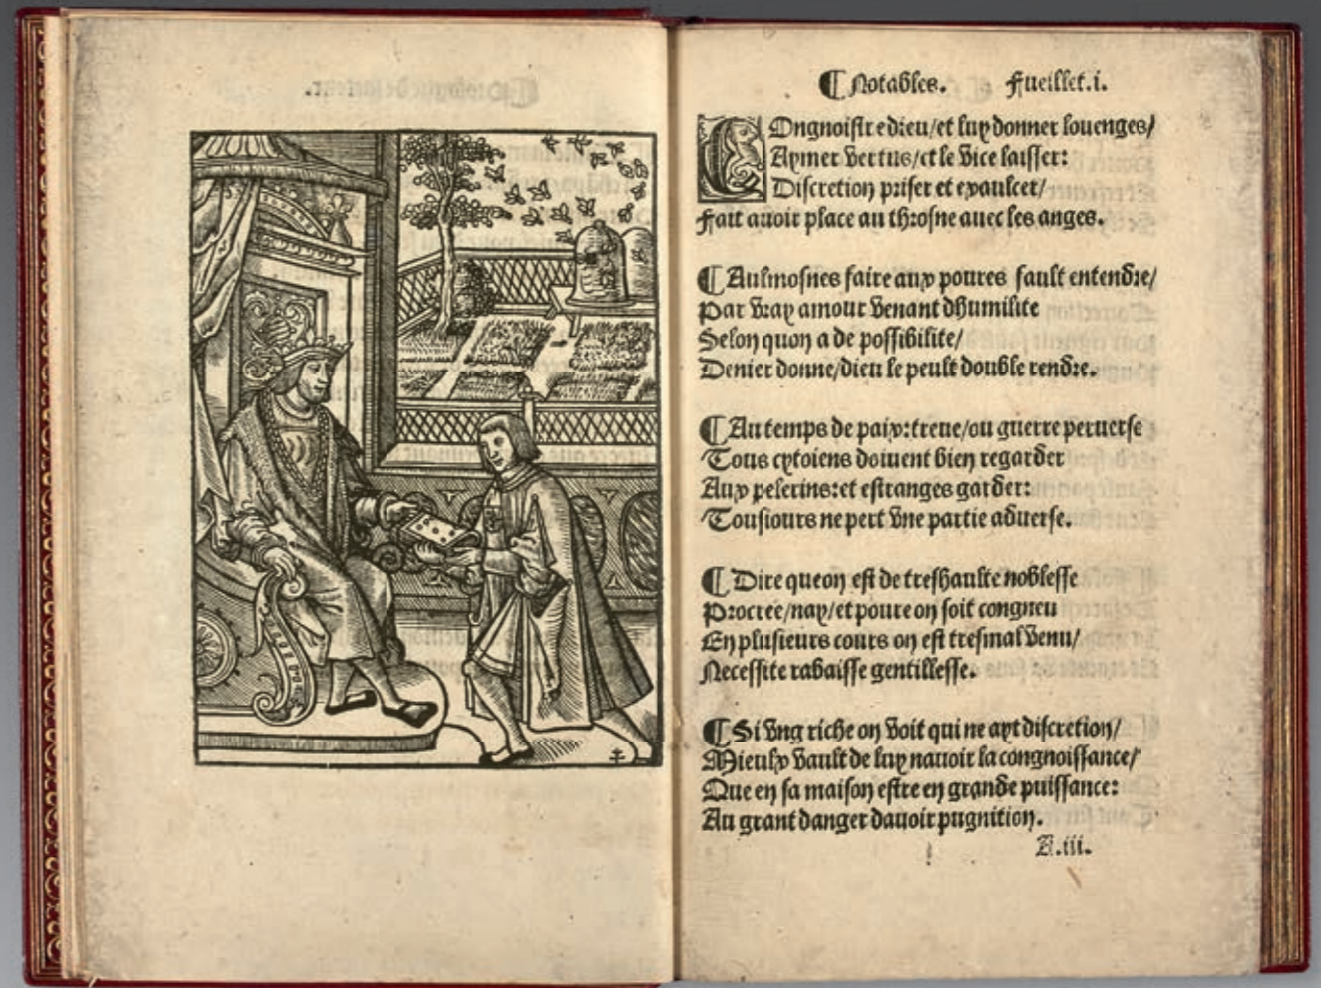 ¶ Notables. Fueillet.i.
COngnoistre dieu/et luy donner louenges/
Aymer vertus/et le vice laisser:
Discretion priser et exaulcer/
Fait auoir place au throsne auec les anges.
¶ Aulmosnes faire aux poures fault entendre/
Par vray amour venant dhumilite
Selon quon a de possibilite/
Denier donne/dieu le peult double rendre.
¶ Au temps de paix:treue/ou guerre peruerse
Tous cytoiens doiuent bien regarder
Aux pelerins:et estranges garder:
Tousiours ne pert vne partie aduerse.
¶ Dire queon est de treshaulte noblesse
Procree/nay/et poure on soit congneu
En plusieurs cours on est tresmal venu/
Necessite rabaisse gentillesse.
¶ Si vng riche on voit qui ne ayt discretion/
Mieulx vault de luy nauoir la congnoissance/
Que en sa maison estre en grande puissance:
Au grant danger dauoir pugnition.
A.iii.